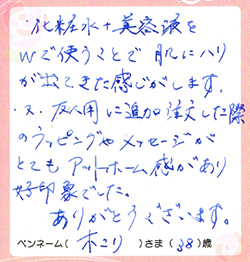 化粧水+美容液を
Wで使うことで肌にハリ
が出てきた感じがします。
・又、友人用に追加注文した際
のラッピングやメッセージが
とてもアットホーム感があり
好印象でした。
ありがとうございます。
ペンネーム( 木こり )さま( 38 )歳